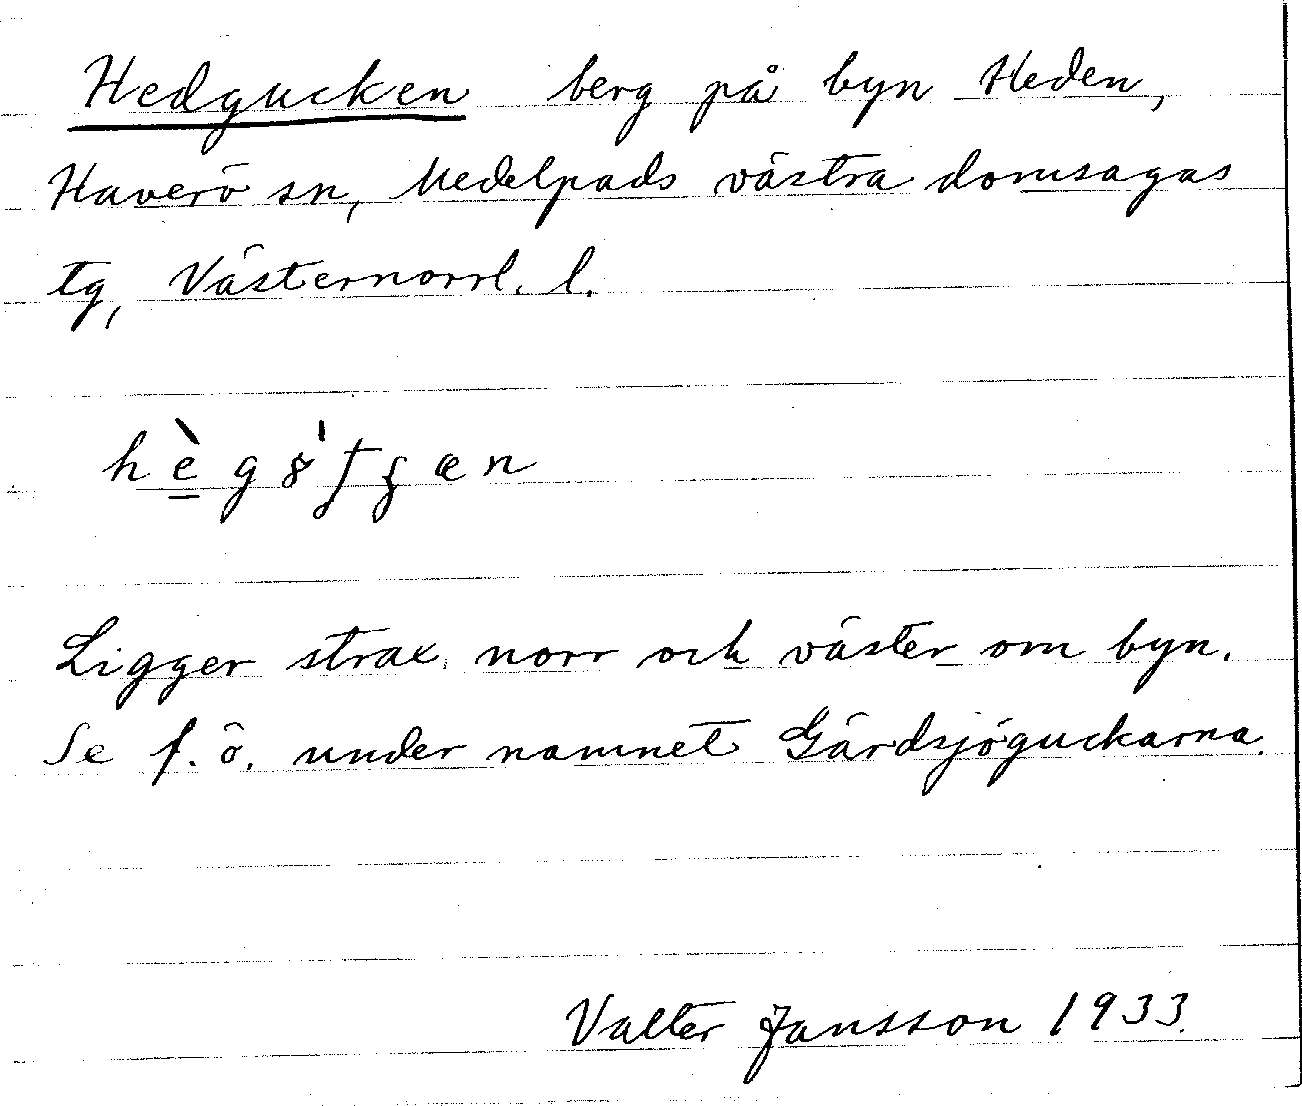 Hedgucken berg på byn Heden,
Haverö sn, Medelpads västra domsagas
tg, Västernorrl. l.
Ligger strax norr och väster om byn.
Se f. ö. under namnet Gärdsjöguckarna.
Valter Jansson 1933.